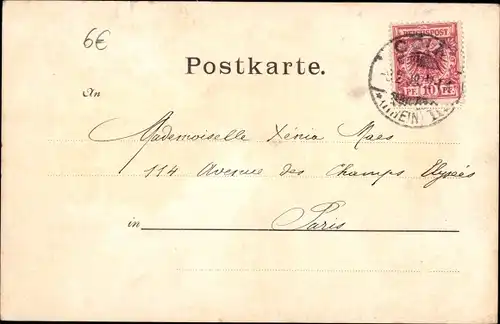 6€
REICHSPOST
PF 10 PF
Postkarte.
An
Mademoiselle Xénia Maes
114 Avenue des Champs Elysées
in Paris